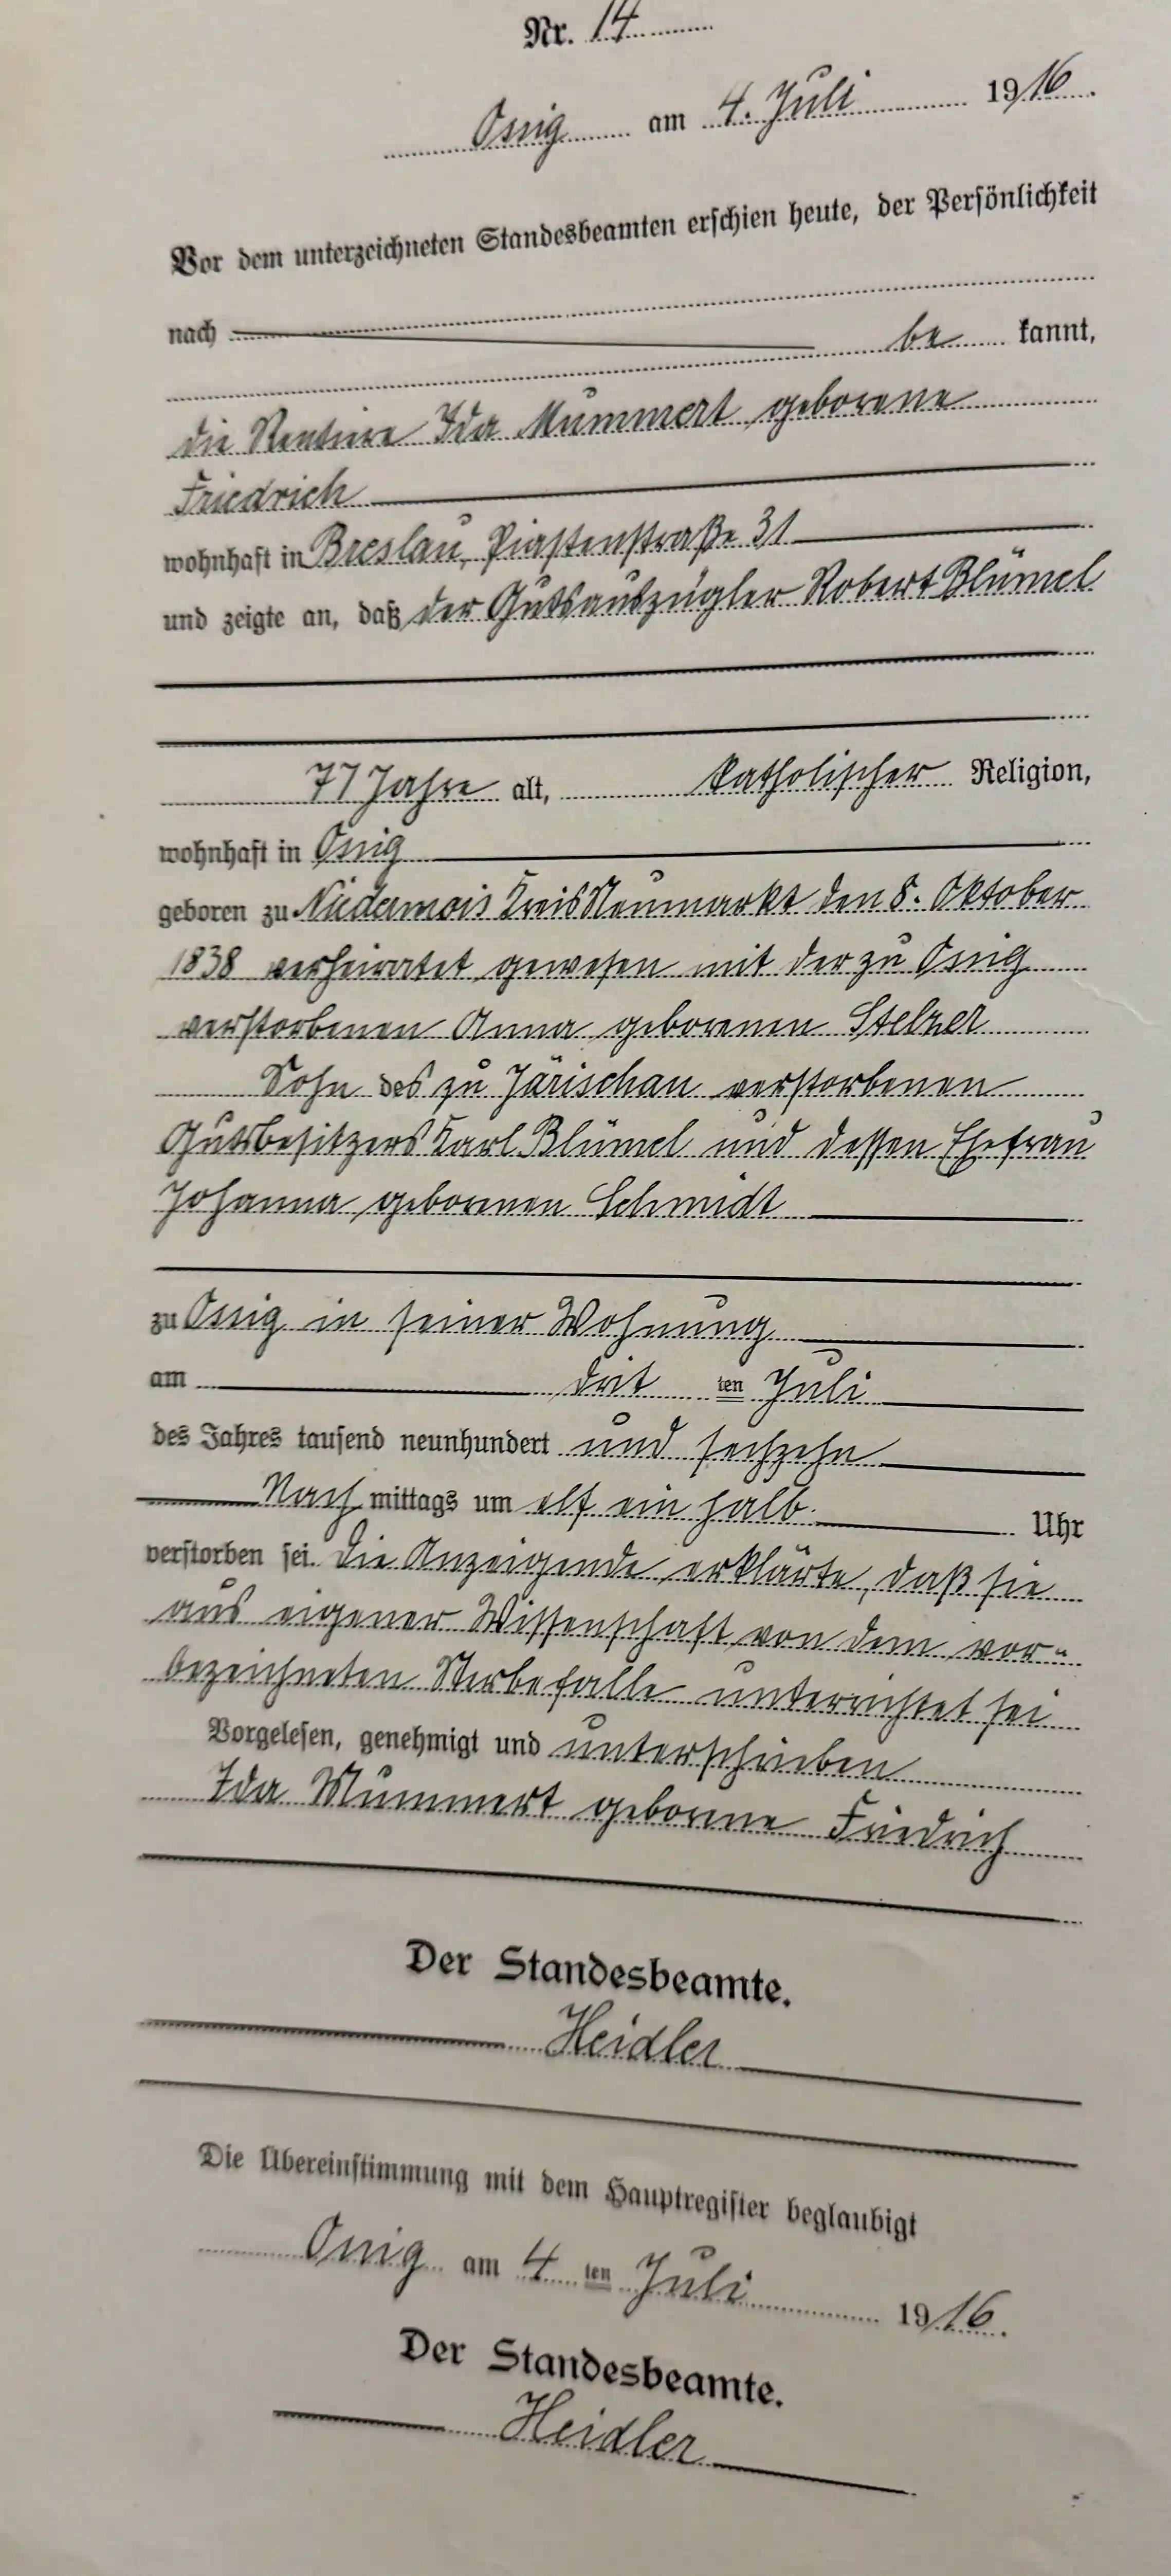 Nr. 14
Ossig am 4. Juli 1916.
Vor dem unterzeichneten Standesbeamten erschien heute, der Persönlichkeit
nach
be kannt,
die Rentiere Ida Mummert geborene
Friedrich
wohnhaft in Breslau, Piastenstraße 31
und zeigte an, daß der Gutsauszügler Robert Blümel
77 Jahre alt, katholischer Religion,
wohnhaft in Ossig
geboren zu Niedermois Kreis Neumarkt den 8. Oktober
1838 verheiratet gewesen mit der zu Ossig
verstorbenen Anna geborenen Stelzer
Sohn des zu Järischau verstorbenen
Gutsbesitzers Karl Blümel und dessen Ehefrau
Johanna geborenen Schmidt
zu Ossig in seiner Wohnung
am drit ten Juli
des Jahres tausend neunhundert und sechzehn
Nach mittags um elf ein halb Uhr
verstorben sei. Die Anzeigende erklärte, daß sie
aus eigener Wissenschaft von dem vor-
bezeichneten Sterbefalle unterrichtet sei
Vorgelesen, genehmigt und unterschrieben
Ida Mummert geborene Friedrich
Der Standesbeamte.
Heidler
Die Übereinstimmung mit dem Hauptregister beglaubigt
Ossig am 4 ten Juli 1916.
Der Standesbeamte.
Heidler